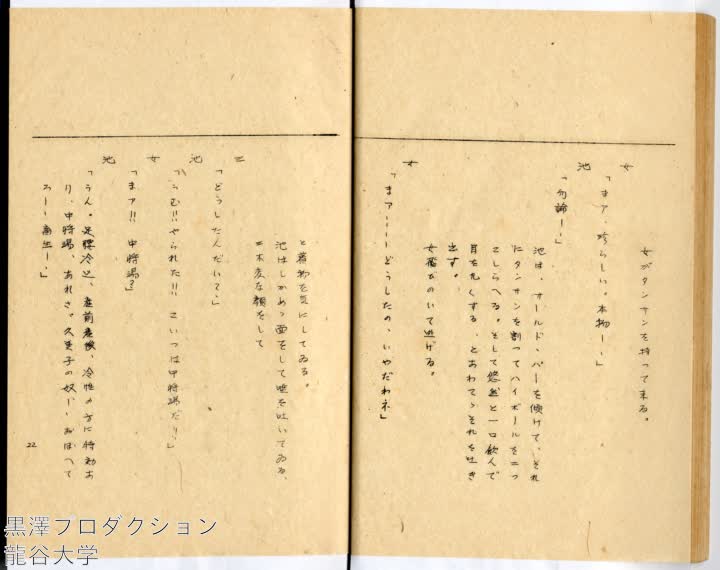 女がタンサンを持って来る。
女「まァ、珍らしい。本物ー、」
池「勿論ー、」
池は、オールド・パーを傾けて、それ
にタンサンを割ってハイボールを二つ
こしらへる。そして悠然と一口飲んで
目を丸くする、とあわてゝそれを吐き
出す。
女傍をのいて逃げる。
女「まァ……どうしたの、いやだわネ」
と着物を気にしてゐる。
池はしかめっ面をして唾を吐いてゐる、
三、不変な顔をして
三「どうしたんだいて、」
池「うむ!!やられた!!こいつは中将湯だり、」
女「まァ!!中将湯?」
池「うん。足腰冷込、産前産後、冷性の方に特効あ
り、中将湯、あれさ。久美子の奴!、おぼへて
ろー、畜生ー、」
22
黒澤プロダクション
龍谷大学